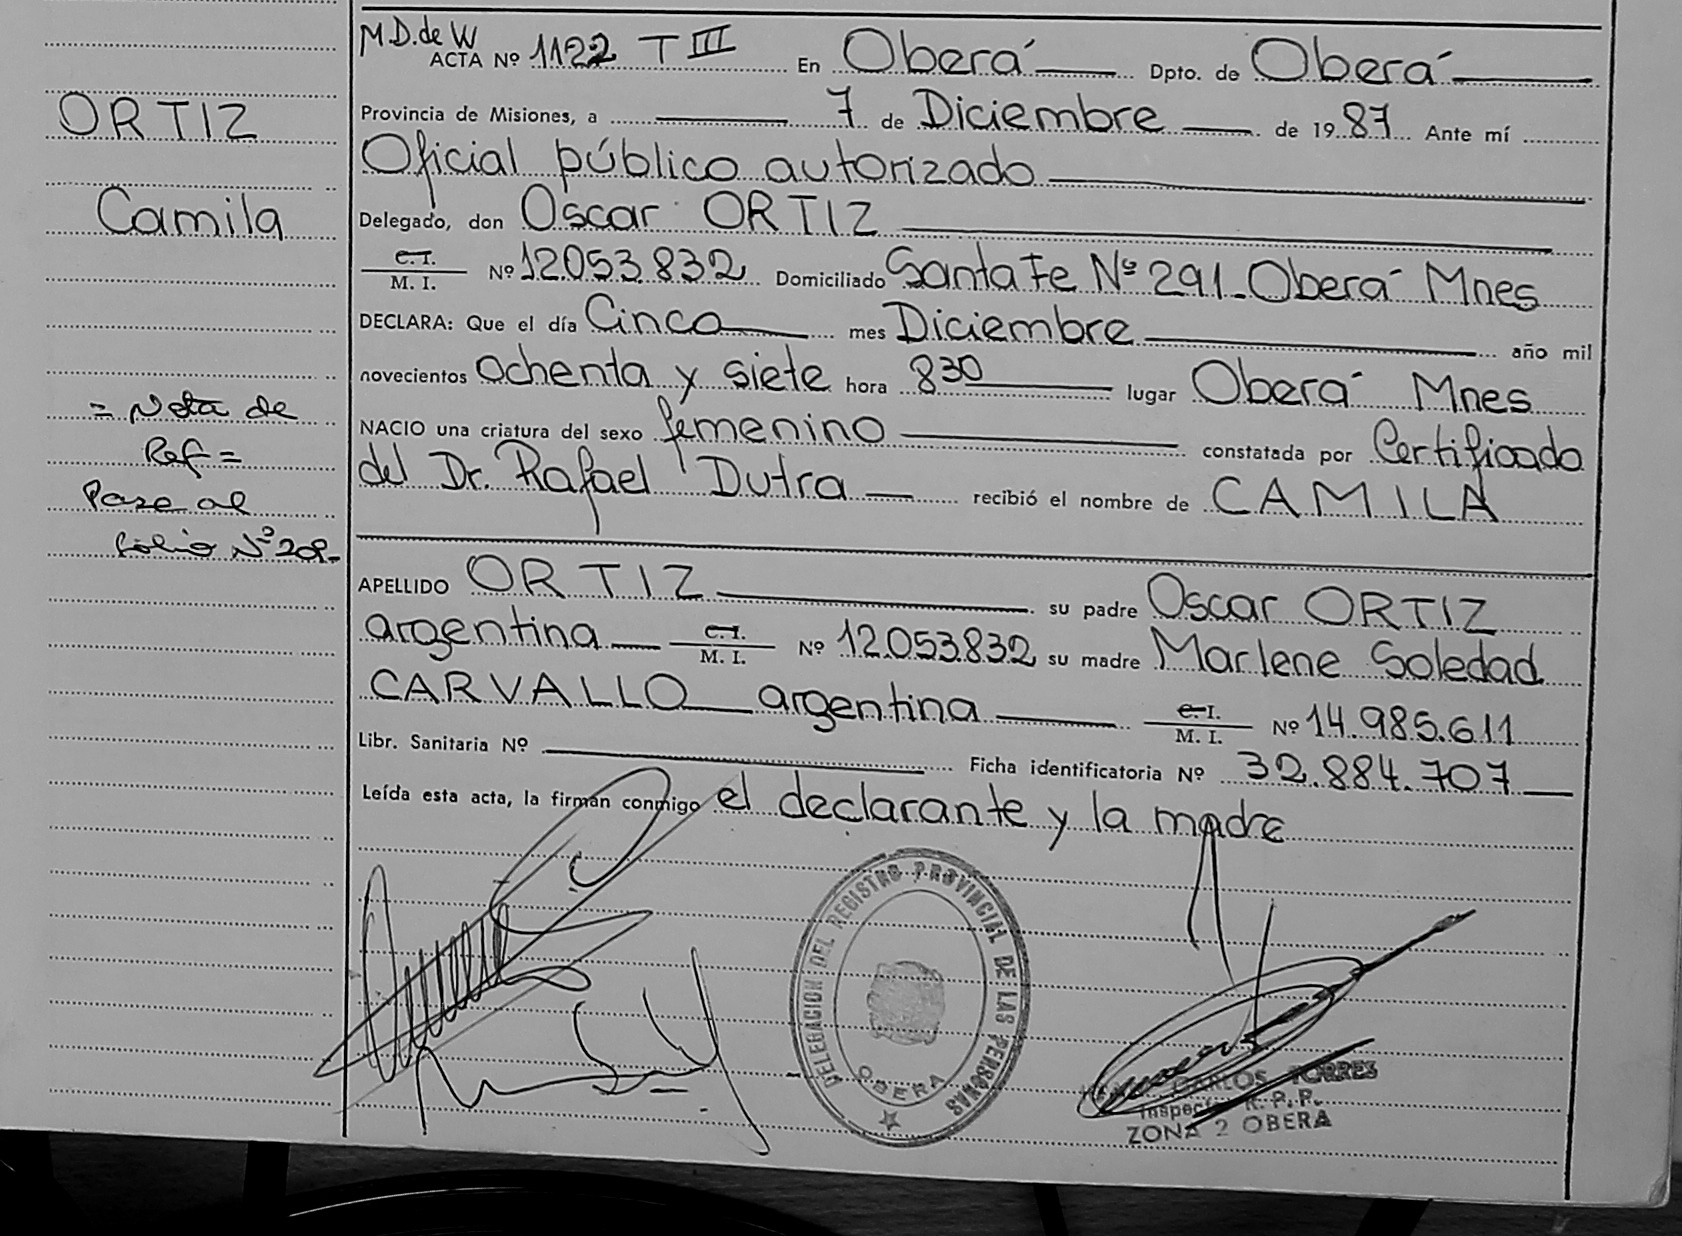 ORTIZ
Camila
= Nota de
Ref =
Pase al
folio Nº 208-
M.D. de W
ACTA Nº 1122 T III En Oberá Dpto. de Oberá
Provincia de Misiones, a 7 de Diciembre de 1987 Ante mí
Oficial público autorizado
Delegado, don Oscar ORTIZ
C.I.
M. I. Nº 12.053.832 Domiciliado Santa Fe Nº 291 - Oberá Mnes
DECLARA: Que el día Cinco mes Diciembre año mil
novecientos ochenta y siete hora 830 lugar Oberá Mnes
NACIO una criatura del sexo femenino constatada por Certificado
del Dr. Rafael Dutra recibió el nombre de CAMILA
APELLIDO ORTIZ su padre Oscar ORTIZ
argentina C.I.
M. I. Nº 12.053.832 su madre Marlene Soledad
CARVALLO argentina C.I.
M. I. Nº 14.985.611
Libr. Sanitaria Nº Ficha identificatoria Nº 32.884.707
Leída esta acta, la firman conmigo el declarante y la madre
DELEGACION DEL REGISTRO PROVINCIAL DE LAS PERSONAS
OBERA
CARLOS TORRES
Inspector R. P. P.
ZONA 2 OBERA